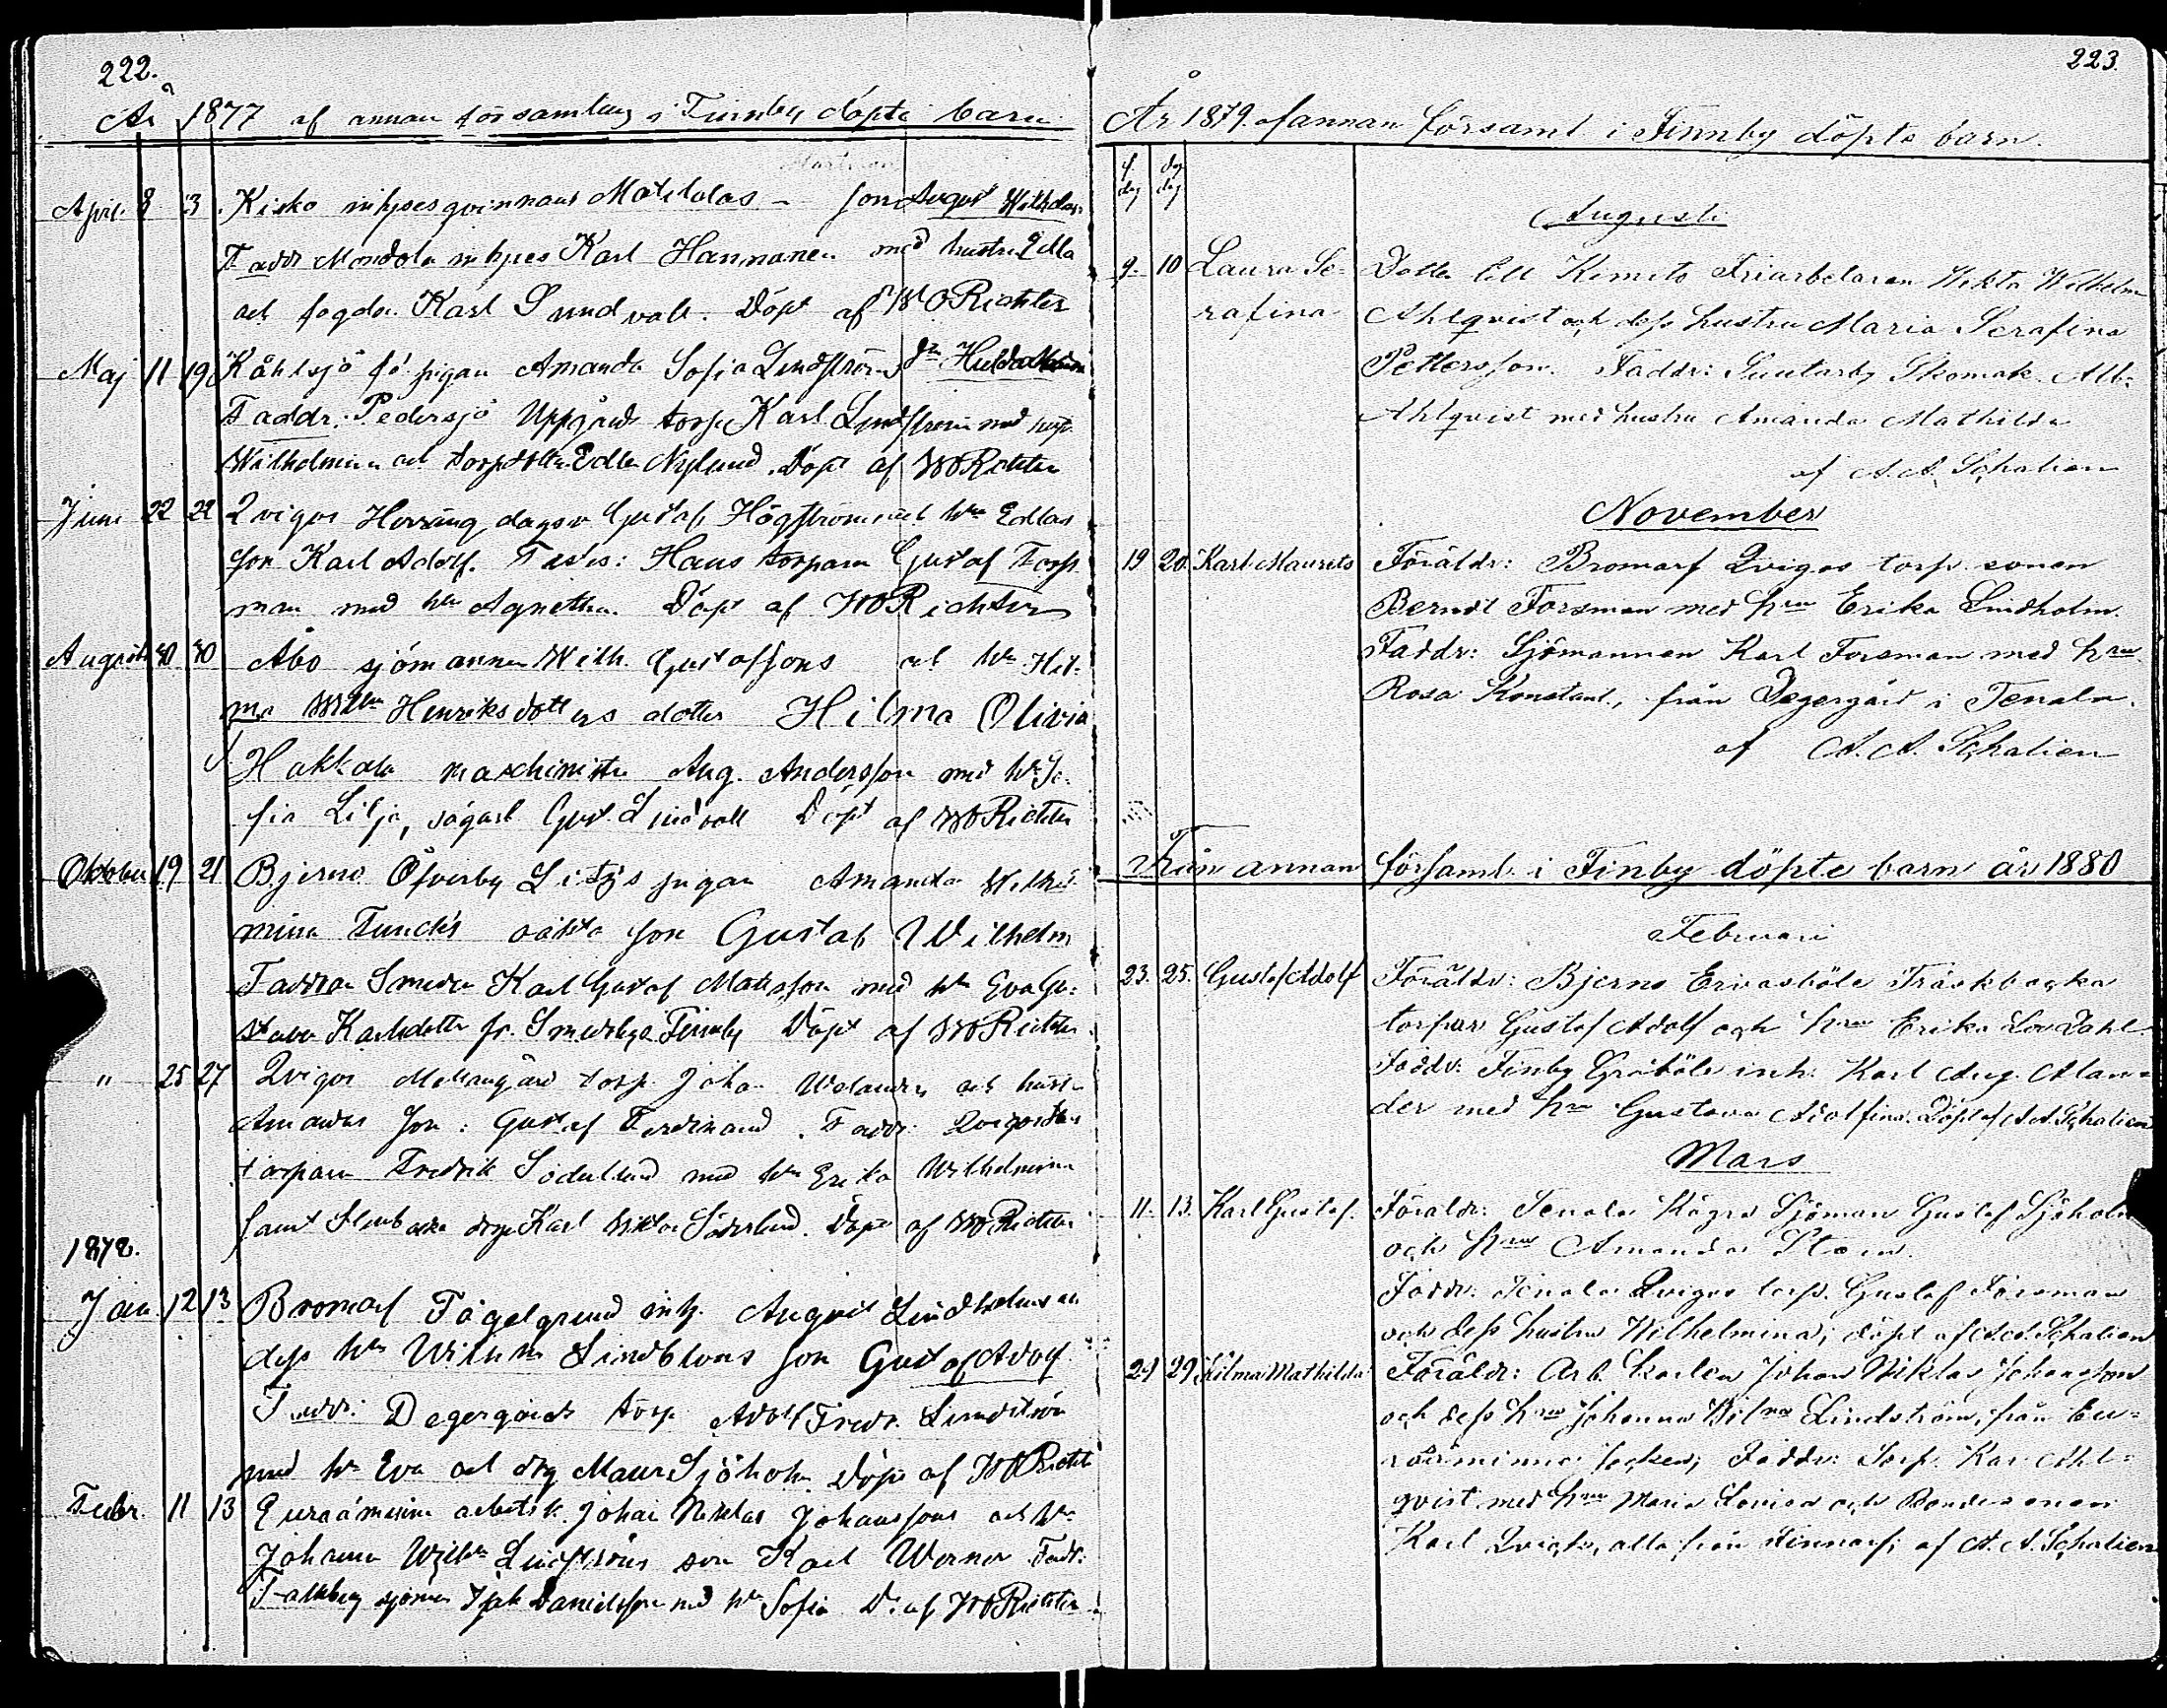 222.
År 1877 af annan församling i Finnby döpte barn
April 8 13 Kisko inhyses qvinnans Matildas - son August Wilhelm
Faddr Mondola inhyses Karl Hannanen med hustru Edla
och fogden Karl Sundvall. Döpt af W O Richter
Maj 11 19 pigan Amanda Sofia Lindström dr Hulda
Faddr: Pedersjö Uppgård torp. Karl Lindström med hust
Wilhelmina och Edla Nylund. Döpt af WO Richter
Juni 22 22 Qvigos Herräng dagsv Gustaf Högström och hn Edlas
son Karl Adolf. Testes: Haus torparen Gustaf Fors
man med hn Agnetha. Döpt af WO Richter
Augusti 30 30 Åbo sjömannen Wilh. Gustafssons och hn Hil-
ma Wilhn Henriksdotters dotter Hilma Olivia
Hakkala maschinisten Aug. Andersson med hn So-
fia Lilja, sågarl Gust. Lindvall Döpt af WO Richter
Oktober 19 21 Bjerno Öfverby pigan Amanda Wilhel
mina Funck's oäkta son Gustaf Wilhelm
Faddrar Smeden Karl Gustaf Matsson med hn Eva Gu-
stava Karlsdotter fr. Finnby Döpt af WO Richter
" 25 27 Qvigos Mellangård torp. Johan och hustr
Amandas son: Gustaf Ferdinand. Faddr:
torparen Fredrik Söderlund med hn Erika Wilhelmina
samt Karl Viktor Söderlund. Döpt af WO Richter
1878.
Jan. 12 13 Bromarf Fägelgrund inh. August Lindholms och
dess hn Wilhna Lindbloms son Gustaf Adolf
Faddr: Degergårds torp. Adolf Fredr. Lindström
med hn Eva och drg Maur Sjöholm. Döpt af WO Richt
Febr. 11 13 Euraåminne arbetsk. Johan Niklas Johanssons och hn
Johanna Wilhn Lindströms son Karl Werner Fadr:
sjöman Isak Danielsson med hn Sofia D: af WO Richter
223.
År 1879. af annan församl. i Finnby döpte barn.
f. dag dp dag
Augusti
9. 10 Laura Se- Dotter till Kimito Friarbetaren Wikt. Wilhelm
rafina Ahlqvist och dess hustru Maria Serafina
Pettersson. Faddr: Skomak. Alb.
Ahlqvist med hustru Amanda Mathilda
af A. A. Schalien
November
19 20. Karl Maurits Föräldr: Bromarf Qvigos torp. sonen
Berndt Forsman med hrun Erika Lindholm.
Faddr: Sjömannen Karl Forsman med hrun
Rosa Konstant., från Degergård i Tenala.
af A. A. Schalien
Från annan församl. i Finby döpte barn år 1880
Februari
23. 25. Gustaf Adolf Föräldr: Bjerno Träskbacka
torpar Gustaf Adolf och hrun Erika Lov. Dahl
Faddr: Finby inh: Karl Aug. Alan-
der med hru Gustava Adolfina. Döpt af A. A. Schalien
Mars
11. 13. Karl Gustaf. Föräldr: Tenala Sjöman Gustaf Sjöholm
och hrun Amanda
Faddr: Tenala Qvigos torp. Gustaf Forsman
och dess hustru Wilhelmina; döpt af A. A. Schalien
29 29 Hilma Mathilda Föräldr: Arb. karlen Johan Niklas Johansson
och dess hru Johanna Wilna Lindström, från Eu-
raåminne socken; Faddr: Torp. Kar. Ahl-
qvist med hrun Maria Lovisa och Bondesonen
Karl alla från af A. A. Schalien